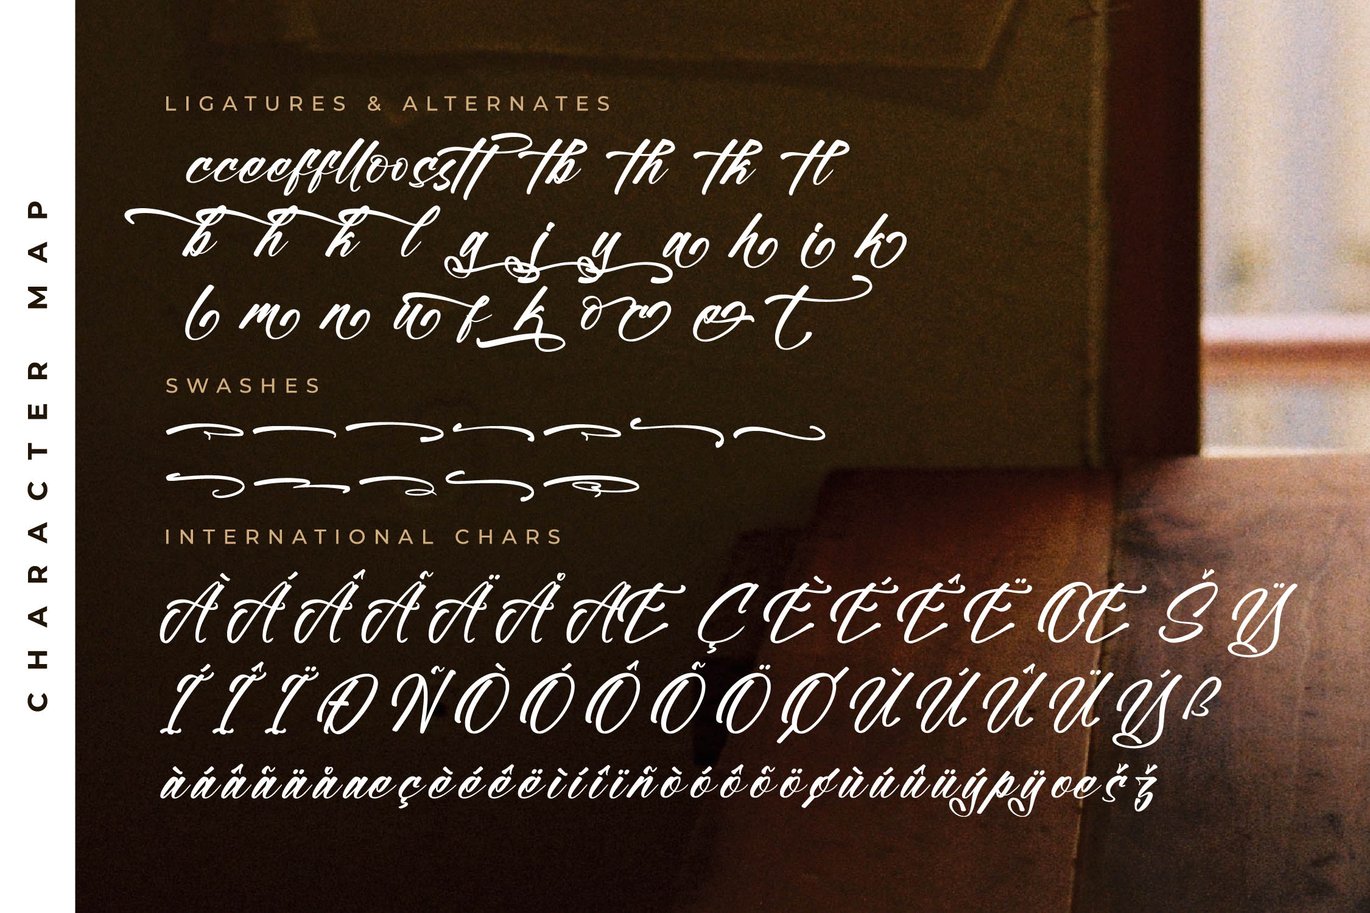 CHARACTER MAP
LIGATURES & ALTERNATES
cceefflloossstt tb th tk tl
b h k l g j y a h i k
l m n u f k o c e t
SWASHES
INTERNATIONAL CHARS
À Á Â Ã Ä Å Æ Ç È É Ê Ë Œ Š Ÿ
Í Î Ï Ð Ñ Ò Ó Ô Õ Ö Ø Ù Ú Û Ü Ý ß
àáâãäåæçèéêëìíîïñòóôõöøùúûüýþÿœšž